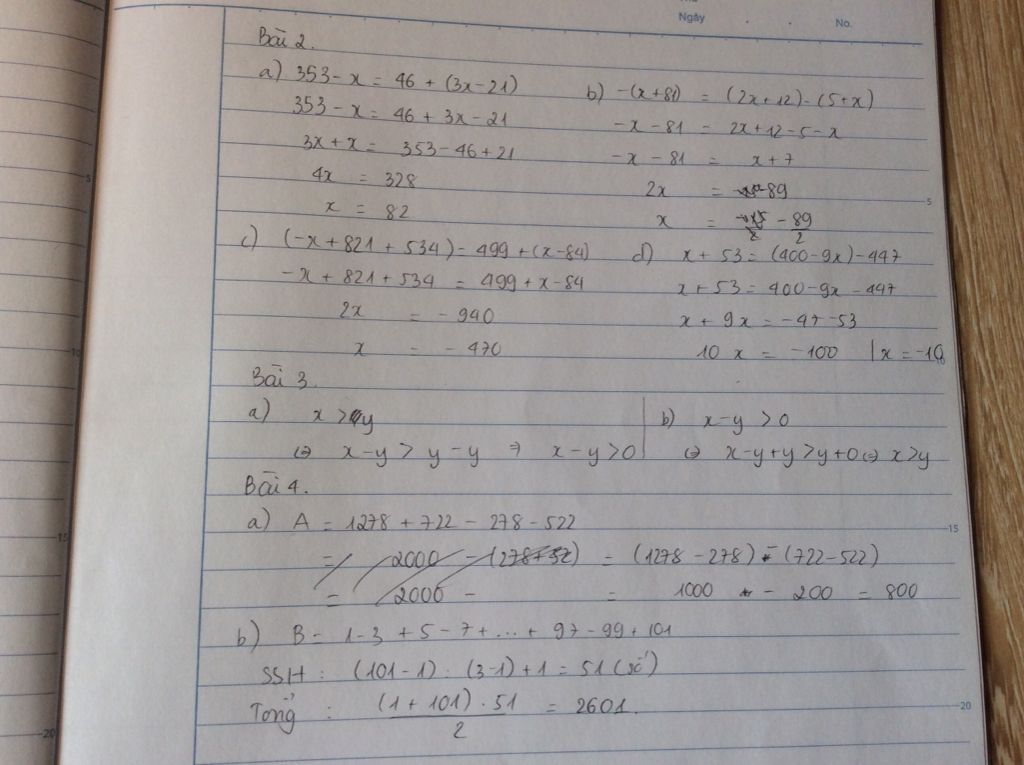 Ngày . . No.
Bài 2.
a) 353 - x = 46 + (3x - 21)
353 - x = 46 + 3x - 21
3x + x = 353 - 46 + 21
4x = 328
x = 82
b) -(x + 81) = (2x + 12) - (5 + x)
-x - 81 = 2x + 12 - 5 - x
-x - 81 = x + 7
2x = -89
x = -89/2
c) (-x + 821 + 534) = 499 + (x - 84)
-x + 821 + 534 = 499 + x - 84
2x = -940
x = -470
d) x + 53 = (400 - 9x) - 447
x + 53 = 400 - 9x - 447
x + 9x = -47 - 53
10x = -100 | x = -10
Bài 3.
a) x > y
⇔ x - y > y - y ⇒ x - y > 0
b) x - y > 0
⇔ x - y + y > y + 0 ⇔ x > y
Bài 4.
a) A = 1278 + 722 - 278 - 522
= 2000 - (278 + 52) = (1278 - 278) - (722 - 522)
= 2000 - = 1000 - 200 = 800
b) B = 1 - 3 + 5 - 7 + ... + 97 - 99 + 101
SSH : (101 - 1) : (3 - 1) + 1 = 51 (số)
Tổng : (1 + 101) . 51 / 2 = 2601.
5
10
15
20
5
10
15
20